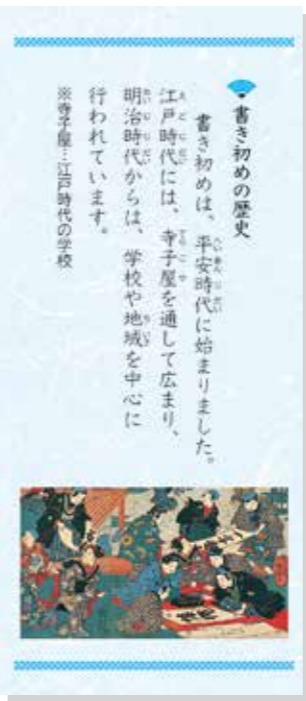 書き初めの歴史
書き初めは、平安時代に始まりました。
江戸時代には、寺子屋を通して広まり、
明治時代からは、学校や地域を中心に
行われています。
※寺子屋…江戸時代の学校